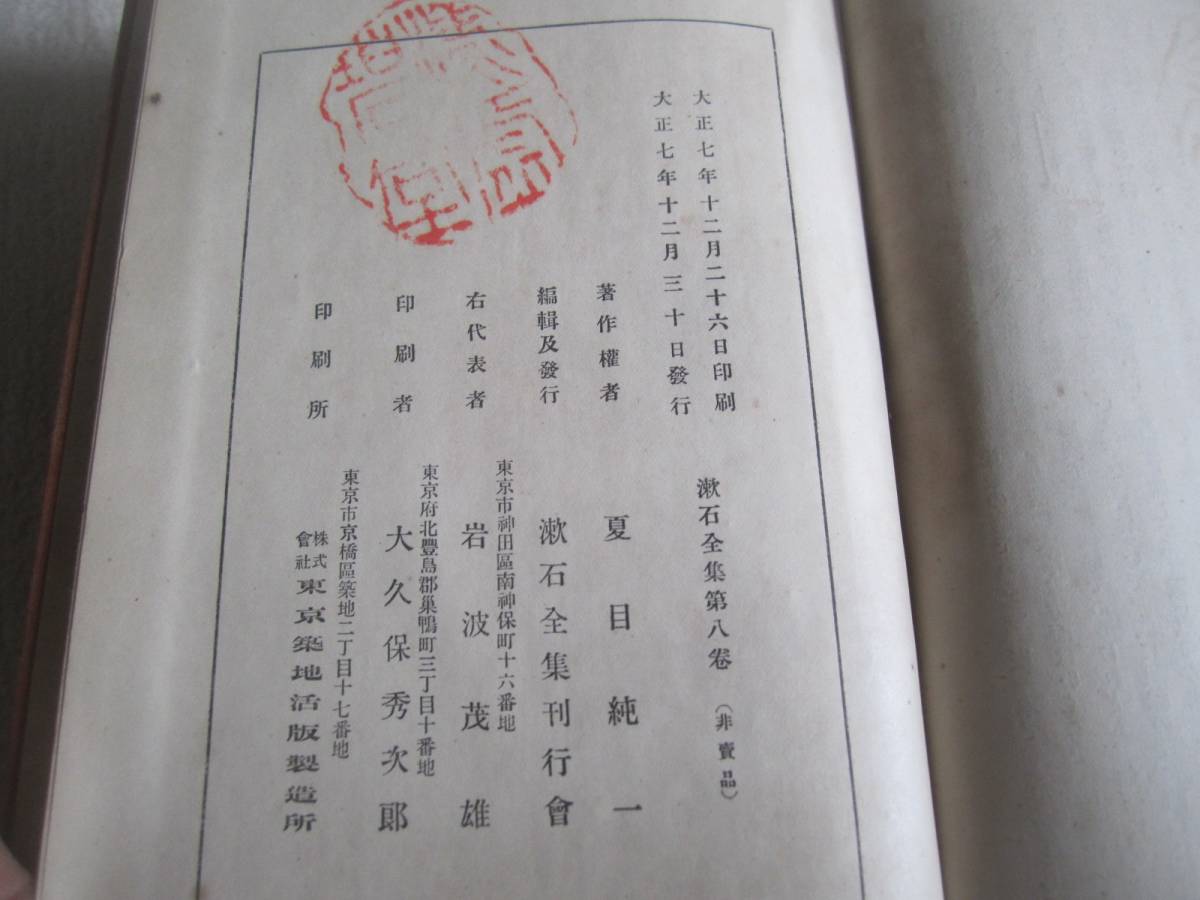 大正七年十二月二十六日印刷
大正七年十二月三十日發行
漱石全集第八卷
(非賣品)
著作權者
夏目純一
編輯及發行
漱石全集刊行會
東京市神田區南神保町十六番地
右代表者
岩波茂雄
東京府北豐島郡巢鴨町三丁目十番地
印刷者
大久保秀次郎
東京市京橋區築地二丁目十七番地
印刷所
株式會社
東京築地活版製造所